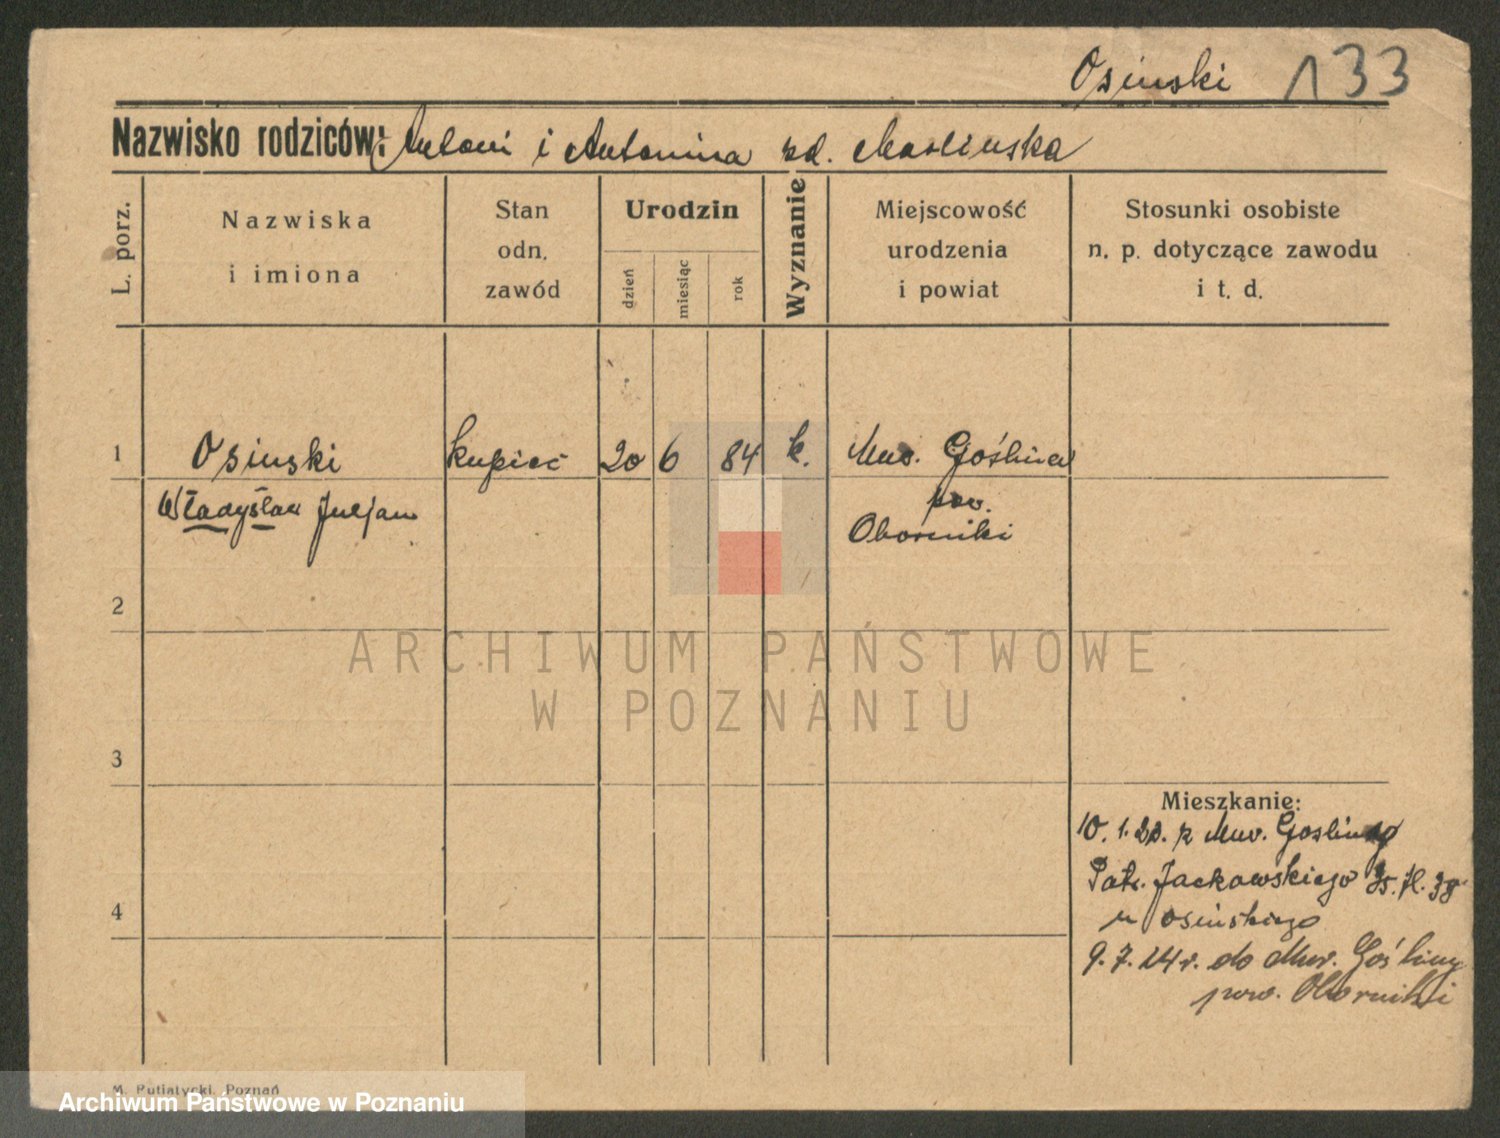 Osinski 133
Nazwisko rodziców: Antoni i Antonina zd. Marlinska
L. porz.
Nazwiska
i imiona
Stan
odn.
zawód
Urodzin
dzień
miesiąc
rok
Wyznanie
Miejscowość
urodzenia
i powiat
Stosunki osobiste
n. p. dotyczące zawodu
i t. d.
1 Osinski kupiec 20 6 84 k. Mur. Goślina
Władysław Juljan pow.
Oborniki
2
ARCHIWUM PAŃSTWOWE
W POZNANIU
3
Mieszkanie:
10. 1. 22. z Mur. Gosliny
Patr. Jackowskiego
4
u Osińskiego
9. 7. 24 r. do Mur. Gośliny
pow. Oborniki
M. Putiatycki, Poznań
Archiwum Państwowe w Poznaniu